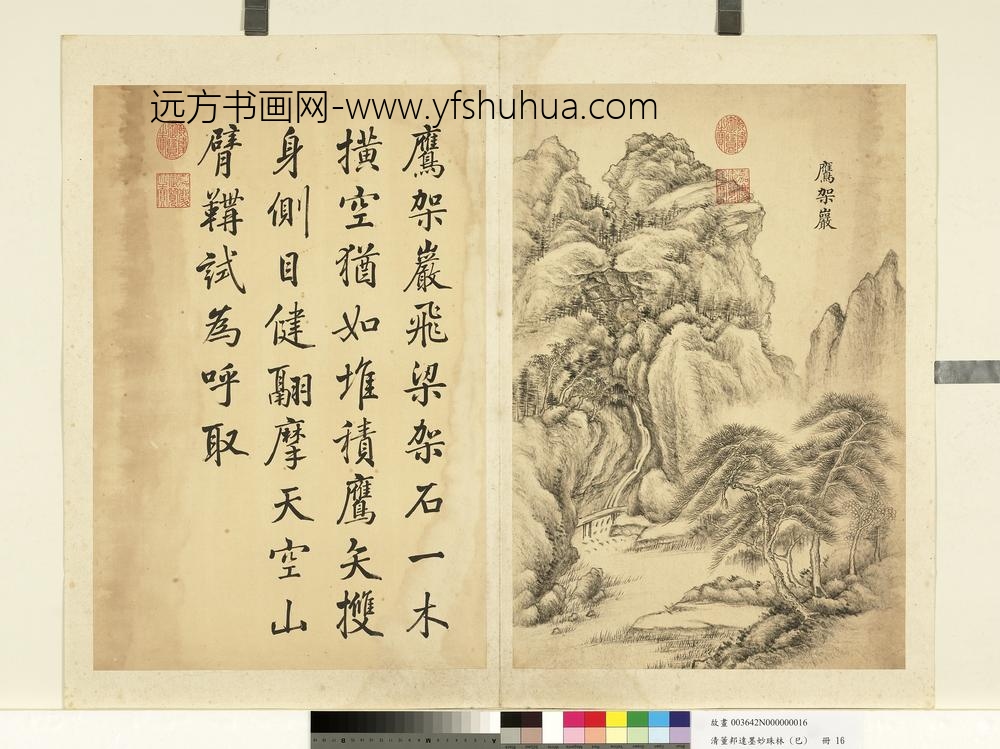 远方书画网-www.yfshuhua.com
鷹架巖
鷹架巖飛梁架石一木
橫空猶如堆積鷹矢擭
身側目健翮摩天空山
臂鞲試為呼取
故畫 003642N000000016
清董邦達墨妙珠林（巳） 冊 16